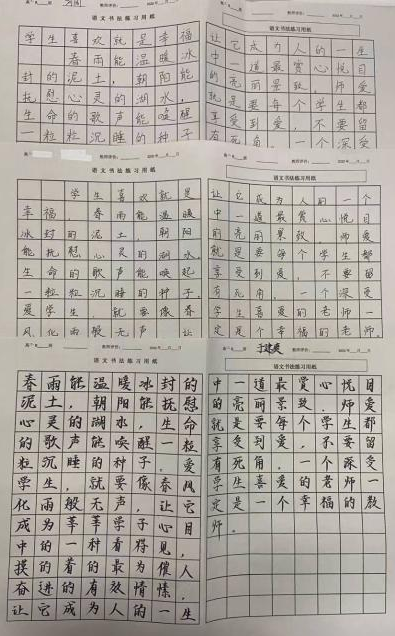 语文书法练习用纸
学生喜欢就是幸福
春雨能温暖冰
封的泥土，朝阳能
抚慰心灵的湖水，
生命的歌声能唤醒
一粒粒沉睡的种子
语文书法练习用纸
让它成为人的一生
中一道最赏心悦目
的亮丽景致，师爱
就是要每个学生都
享受到爱，不要留
有死角，一个深受
语文书法练习用纸
学生喜欢就是
幸福，春雨能温暖
冰封的泥土，朝阳
能抚慰心灵的湖水，
生命的歌声能唤起
一粒粒沉睡的种子，
爱学生，就要像春
风化雨般无声，让
语文书法练习用纸
让它成为人的一个
中一道最赏心悦目
的亮丽景致，师爱
就是要每个学生都
享受到爱，不要留
有死角，一个深受
学生喜爱的老师一
定是个幸福的老师
语文书法练习用纸
春雨能温暖冰封的
泥土，朝阳能抚慰
心灵的湖水，生命
的歌声能唤醒一粒
粒沉睡的种子。爱
学生，就要像春风
化雨般无声，让它
成为莘莘学子心目
中的一种看得见，
摸的着的最为催人
奋进的有效情愫，
让它成为人的一生
语文书法练习用纸
中一道最赏心悦目
的亮丽景致。师爱
就是要每个学生都
享受到爱，不要留
有死角，一个深受
学生喜爱的老师一
定是一个幸福的教
师。